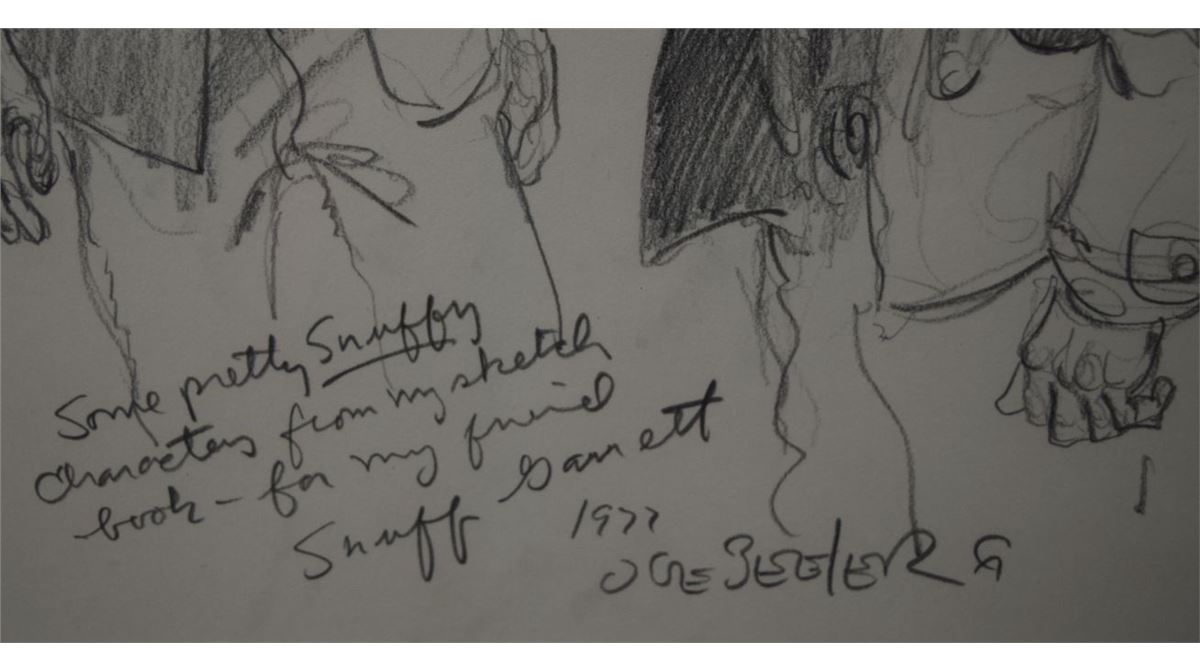 Some pretty Snuffy
characters from my sketch
book - for my friend
Snuff Garrett
1977
JOE BEELER